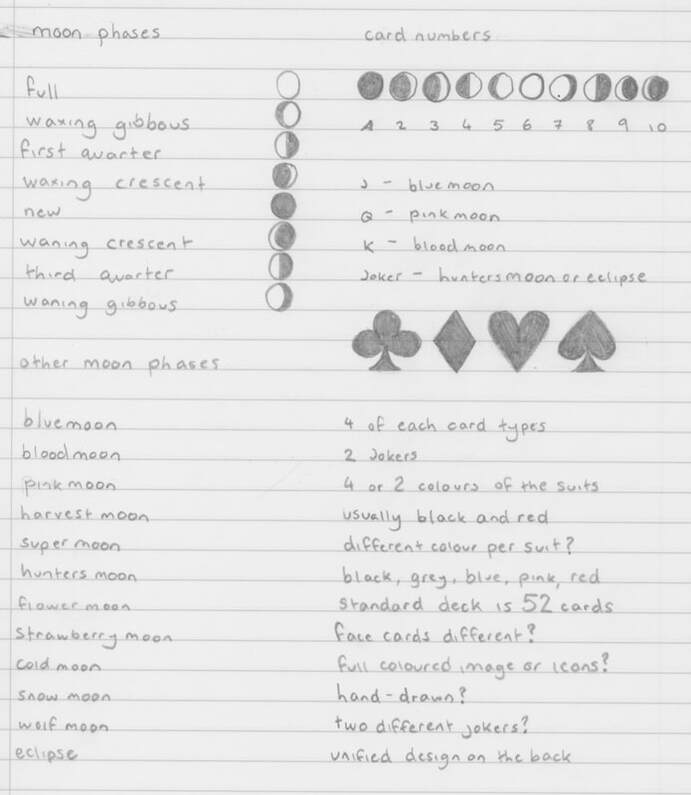 moon phases
full
waxing gibbous
first quarter
waxing crescent
new
waning crescent
third quarter
waning gibbous
other moon phases
bluemoon
bloodmoon
pinkmoon
harvest moon
super moon
hunters moon
flower moon
strawberry moon
cold moon
snow moon
wolf moon
eclipse
card numbers
A 2 3 4 5 6 7 8 9 10
J - bluemoon
Q - pinkmoon
K - bloodmoon
Joker - huntersmoon or eclipse
4 of each card types
2 Jokers
4 or 2 colours of the suits
usually black and red
different colour per suit?
black, grey, blue, pink, red
standard deck is 52 cards
face cards different?
full coloured image or icons?
hand-drawn?
two different jokers?
unified design on the back